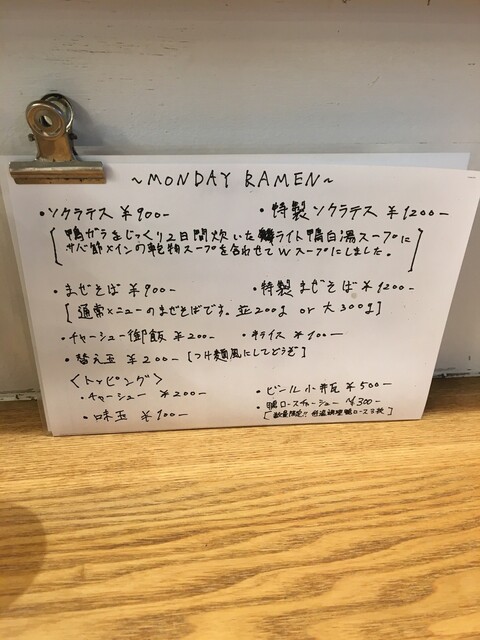 ~MONDAY RAMEN~
・ソクラテス ¥900- ・特製ソクラテス ¥1200-
[鴨ガラをじっくり2日間炊いたライト鴨白湯スープに
サバ節メインの乾物スープを合わせてWスープにしました。]
・まぜそば ¥900- ・特製まぜそば ¥1200-
[通常メニューのまぜそばです。並200g or 大300g]
・チャーシュー御飯 ¥200- ・半ライス ¥100-
・替え玉 ¥200- [つけ麺風にしてどうぞ]
〈トッピング〉
・チャーシュー ¥200- ・ビール小瓶 ¥500-
・味玉 ¥100- ・鴨ロースチャーシュー ¥300-
[数量限定!! 低温調理鴨ロース3枚]